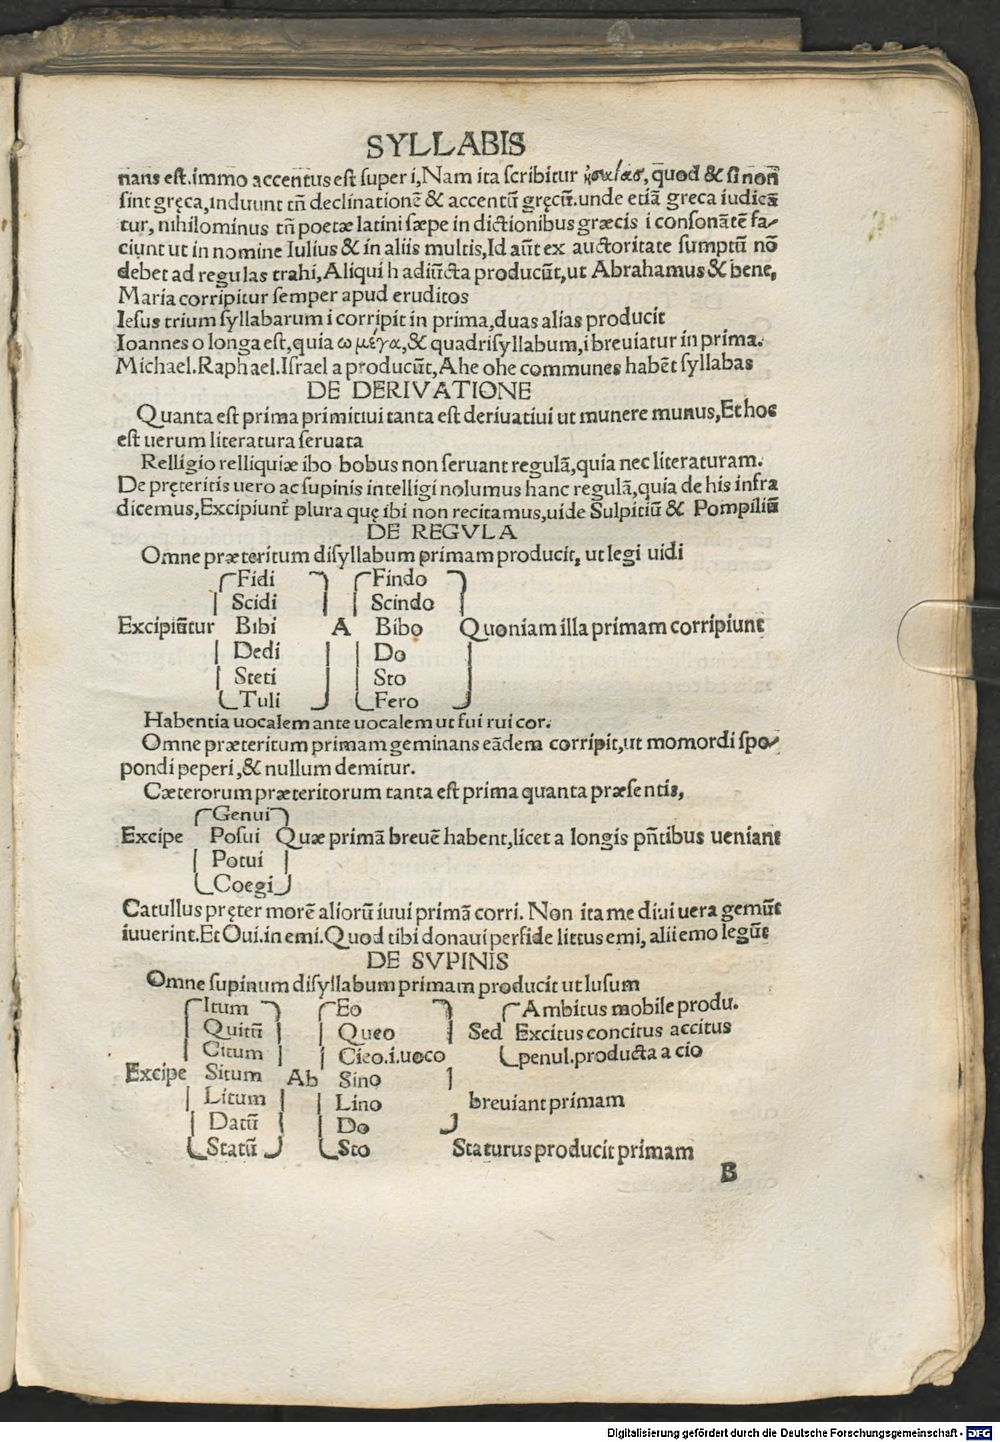 SYLLABIS
nans est.immo accentus est super i,Nam ita scribitur quod & si non
sint gręca,induunt tñ declinationẽ & accentũ gręcũ.unde etiã greca iudicã
tur, nihilominus tñ poetæ latini sæpe in dictionibus græcis i consonãtẽ fa-
ciunt ut in nomine Iulius & in aliis multis,Id aũt ex auctoritate sumptũ nõ
debet ad regulas trahi,Aliqui h adiũcta producũt,ut Abrahamus & bene,
Maria corripitur semper apud eruditos
Iesus trium syllabarum i corripit in prima,duas alias producit
Ioannes o longa est,quia ω μέγα,& quadrisyllabum,i breuiatur in prima.
Michael.Raphael.Israel a producũt,Ahe ohe communes habẽt syllabas
DE DERIVATIONE
Quanta est prima primitiui tanta est deriuatiui ut munere munus,Et hoc
est uerum literatura seruata
Relligio relliquiæ ibo bobus non seruant regulã,quia nec literaturam.
De pręteritis uero ac supinis intelligi nolumus hanc regulã,quia de his infra
dicemus,Excipiunt̃ plura quę ibi non recitamus,uide Sulpitiũ & Pompiliũ
DE REGVLA
Omne præteritum disyllabum primam producit, ut legi uidi
Fidi Findo
Scidi Scindo
Excipiũtur Bibi A Bibo Quoniam illa primam corripiunt
Dedi Do
Steti Sto
Tuli Fero
Habentia uocalem ante uocalem ut fui rui cor.
Omne præteritum primam geminans eãdem corripit,ut momordi spo-
pondi peperi,& nullum demitur.
Cæterorum præteritorum tanta est prima quanta præsentis,
Genui
Excipe Posui Quæ primã breuẽ habent,licet a longis pñtibus ueniant
Potui
Coegi
Catullus pręter morẽ aliorũ iuui primã corri. Non ita me diui uera gemũt
iuuerint.Et Oui.in emi.Quod tibi donaui perfide littus emi, alii emo legũt
DE SVPINIS
Omne supinum disyllabum primam producit ut lusum
Itum Eo Ambitus mobile produ.
Quitũ Queo Sed Excitus concitus accitus
Citum Cieo.i.uoco penul.producta a cio
Excipe Situm Ab Sino
Litum Lino breuiant primam
Datũ Do
Statũ Sto Staturus producit primam
B
Digitalisierung gefördert durch die Deutsche Forschungsgemeinschaft - DFG